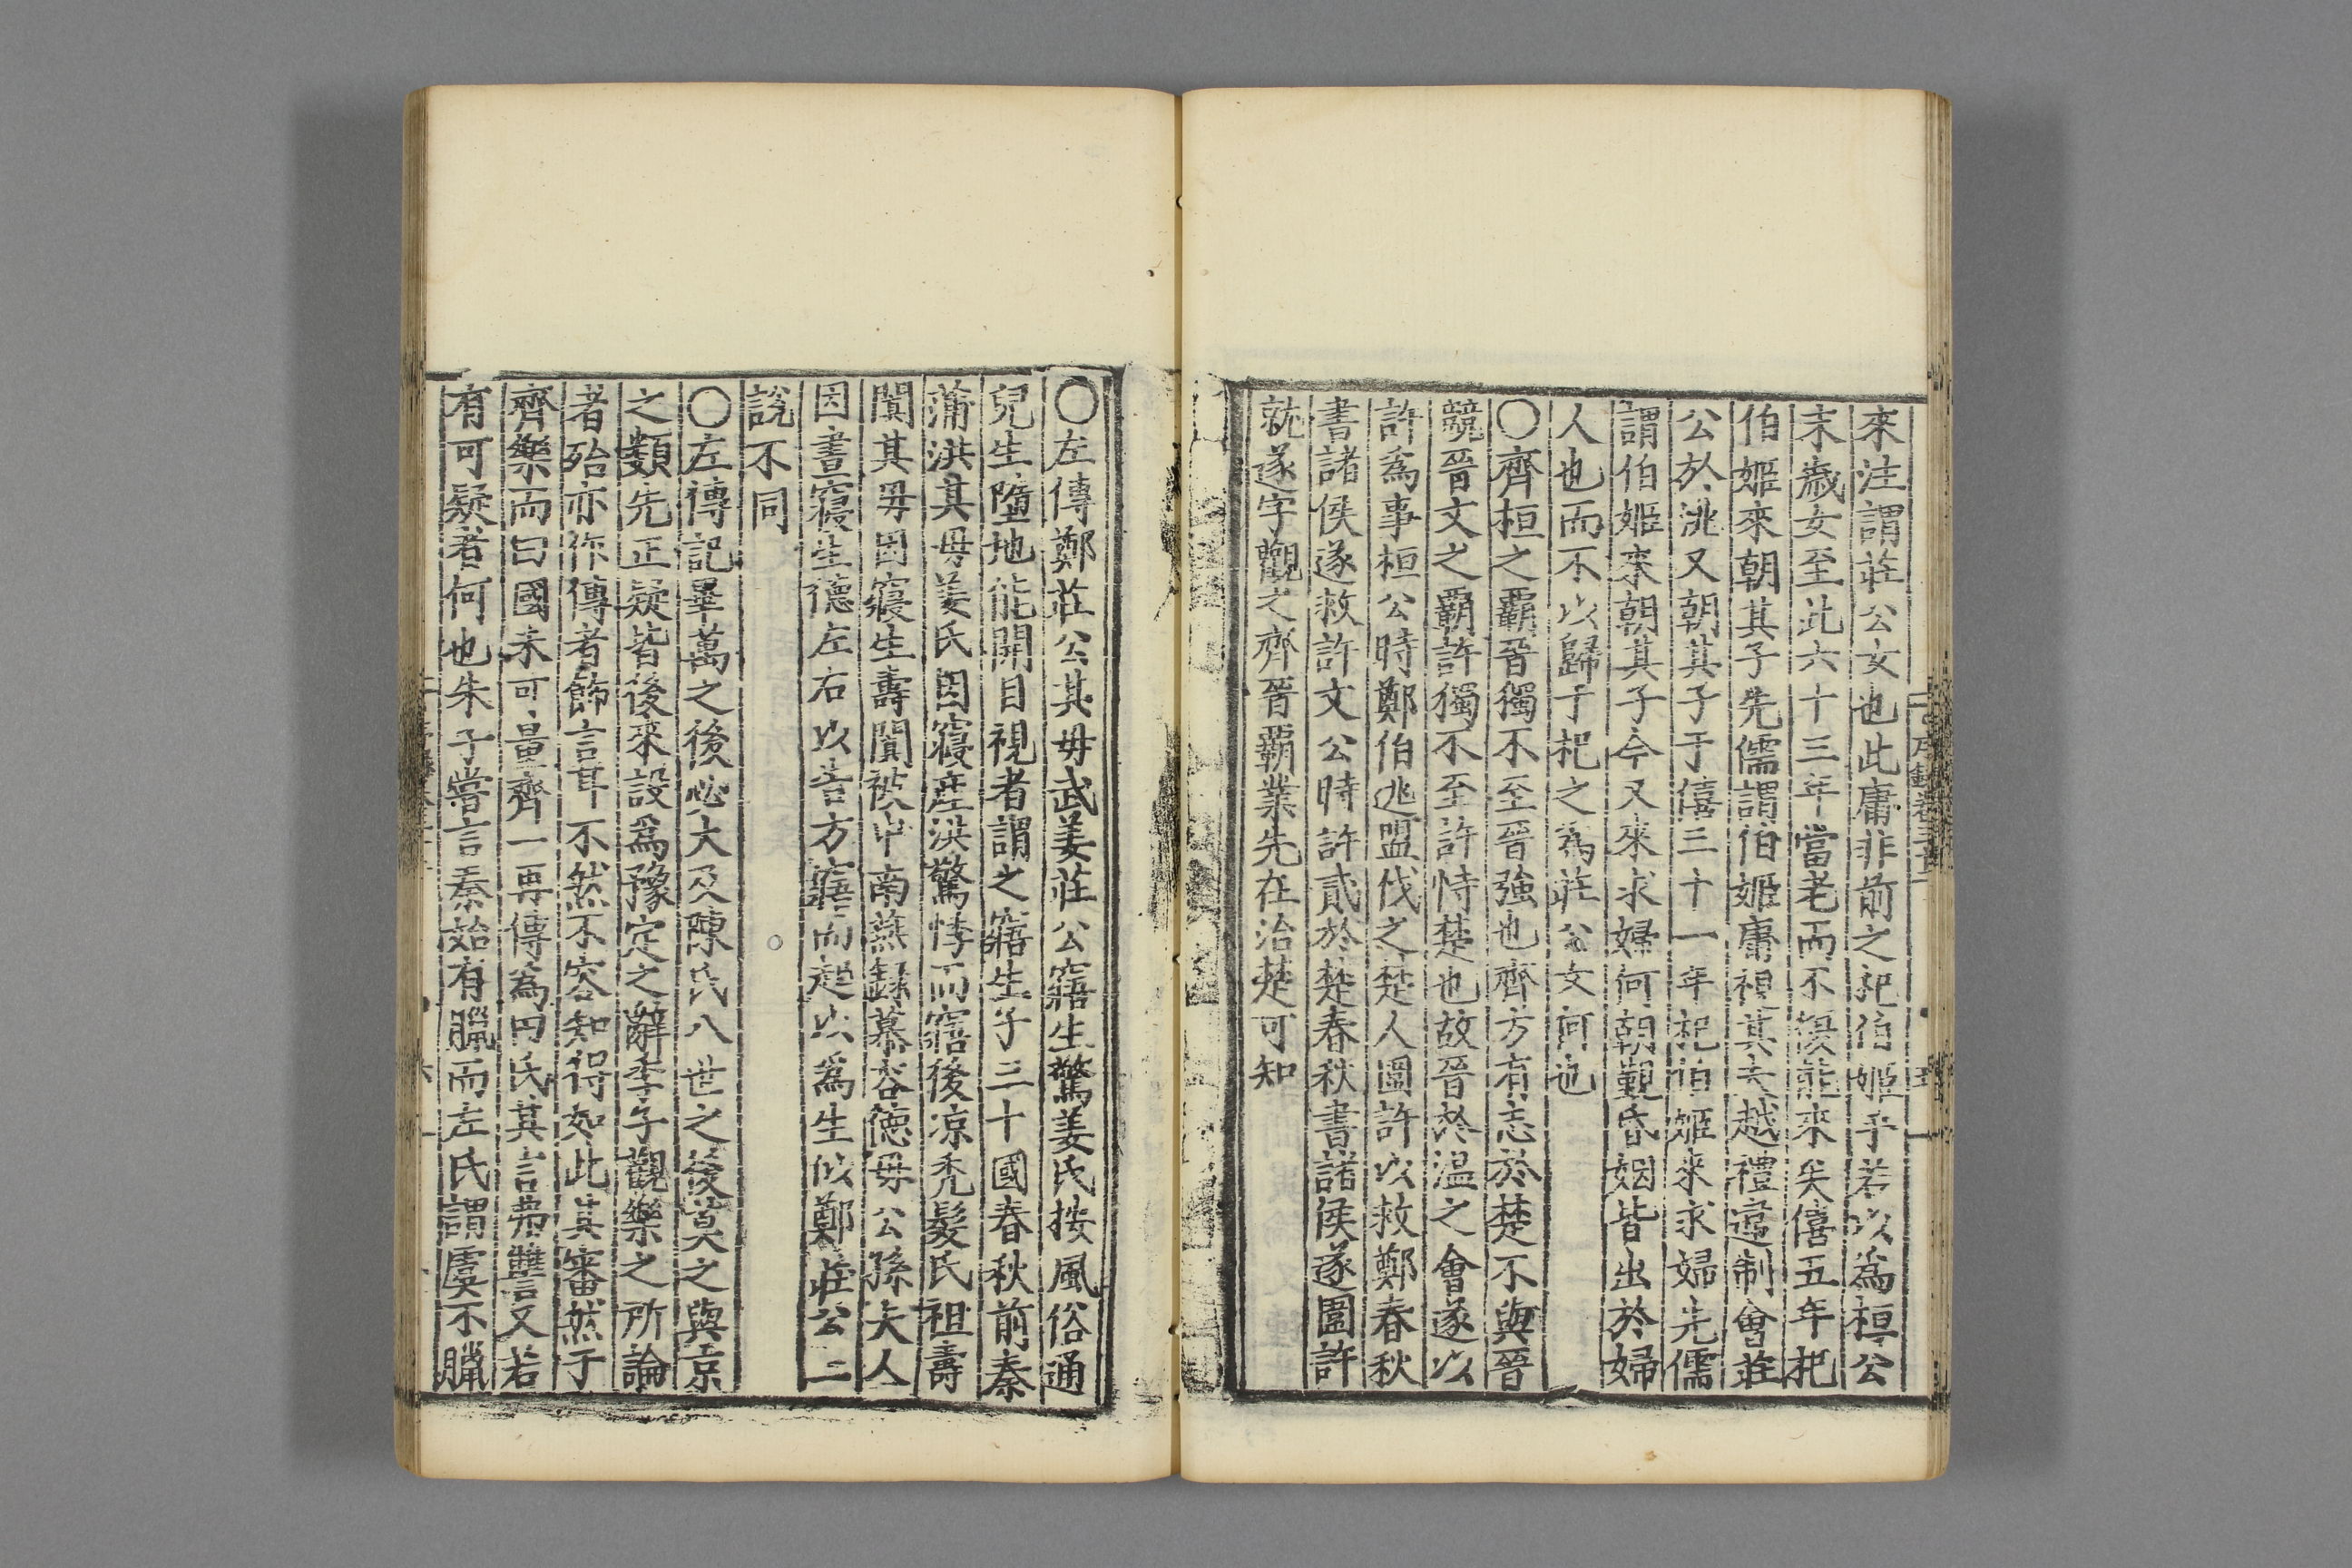 來注謂莊公女也此庸非前之𣏌伯姬乎若以為桓公
末歲女至此六十三年當老而不復能來矣僖五年𣏌
伯姬來朝其子先儒謂伯姬庸視其夫越禮違制會莊
公於洮又朝其子于僖三十一年𣏌伯姬來求婦先儒
謂伯姬來朝其子今又來求婦何朝覲昏姻皆出於婦
人也而不以歸于𣏌之為莊公女何也
〇齊桓之覇晉獨不至晉強也齊方有志於楚不與晉
競晉文之覇許獨不至許恃楚也故晉於温之會遂以
許為事桓公時鄭伯逃盟伐之楚人圍許以救鄭春秋
書諸侯遂救許文公時許貳於楚春秋書諸侯遂圍許
就遂字觀之齊晉覇業先在治楚可知
〇左傳鄭莊公其毋武姜莊公寤生驚姜氏按風俗通
兒生墮地能開目視者謂之寤生子三十國春秋前秦
蒲洪其毋姜氏因寢産洪驚悸而寤後凉秃髮氏祖壽
闐其毋因寢生壽闐被中南燕録慕容德毋公孫夫人
因晝寢生德左右以告方寤而起以為生似鄭莊公二
說不同
〇左傳記畢萬之後必大及陳氏八世之後莫之與京
之類先正疑皆後來設為豫定之辭季子觀樂之所論
者殆亦作傳者飾言耳不然不容知得如此其審然于
齊樂而曰國未可量齊一再傳為田氏其言弗讐又若
有可疑者何也朱子嘗言秦始有臘而左氏謂虞不臘